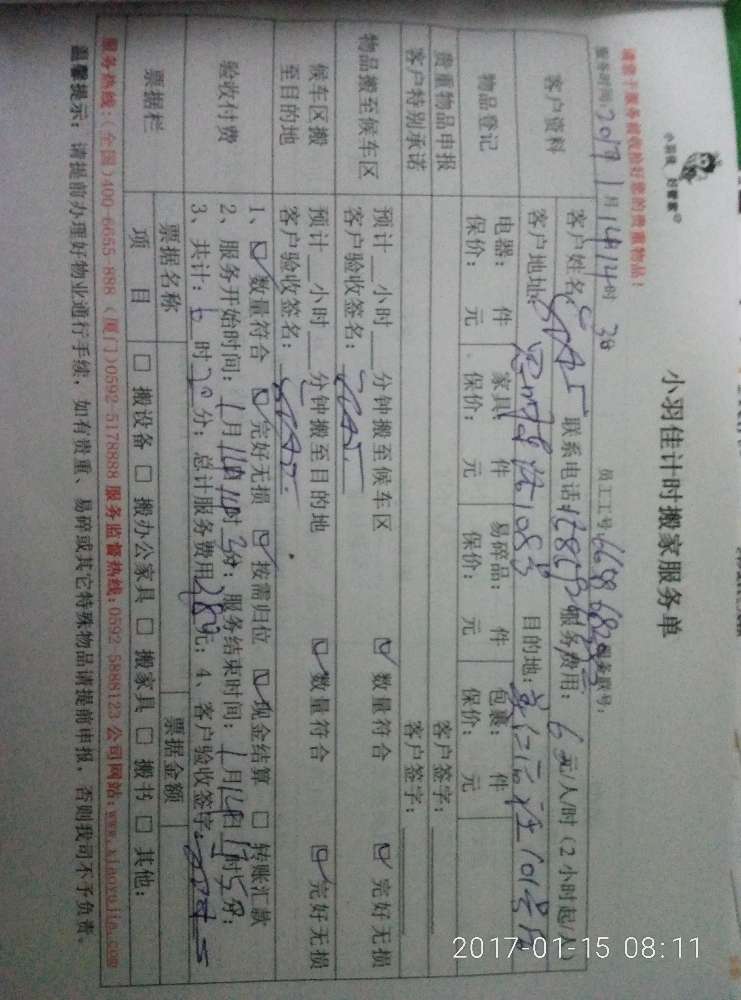 小羽佳 好管家
小羽佳计时搬家服务单
请您于服务前收拾好您的贵重物品!
服务时间:2017 1月14日14时30 员工工号: 服务联号:
客户资料
客户姓名: 联系电话: 服务费用: 6元/人/时(2小时起/人)
客户地址: 目的地:
物品登记
电器: 件 家具: 件 易碎品: 件 包裹: 件
保价: 元 保价: 元 保价: 元 保价: 元
贵重物品申报 客户签字:
客户特别承诺 客户签字:
物品搬至候车区
预计__小时__分钟搬至候车区 ☑ 数量符合 ☑ 完好无损
客户验收签名:
候车区搬
至目的地
预计__小时__分钟搬至目的地 ☑ 数量符合 ☑ 完好无损
客户验收签名:
验收付费
1、☑ 数量符合 ☑ 完好无损 ☑ 按需归位 ☑ 现金结算 □ 转账汇款
2、服务开始时间:1月14日14时30分;服务结束时间:1月14日
3、共计: 时20分;总计服务费用 元;4、客户验收签字:
票据栏
票据名称 票据金额
项 目 □ 搬设备 □ 搬办公家具 □ 搬家具 □ 搬书 □ 其他:
服务热线:(全国)400-6655-888 (厦门)0592-5178888 服务监督热线:0592-5888123 公司网站:www.xiaoyujia.com
温馨提示:请提前办理好物业通行手续,如有贵重、易碎或其它特殊物品请提前申报,否则我司不予负责。
2017-01-15 08:11